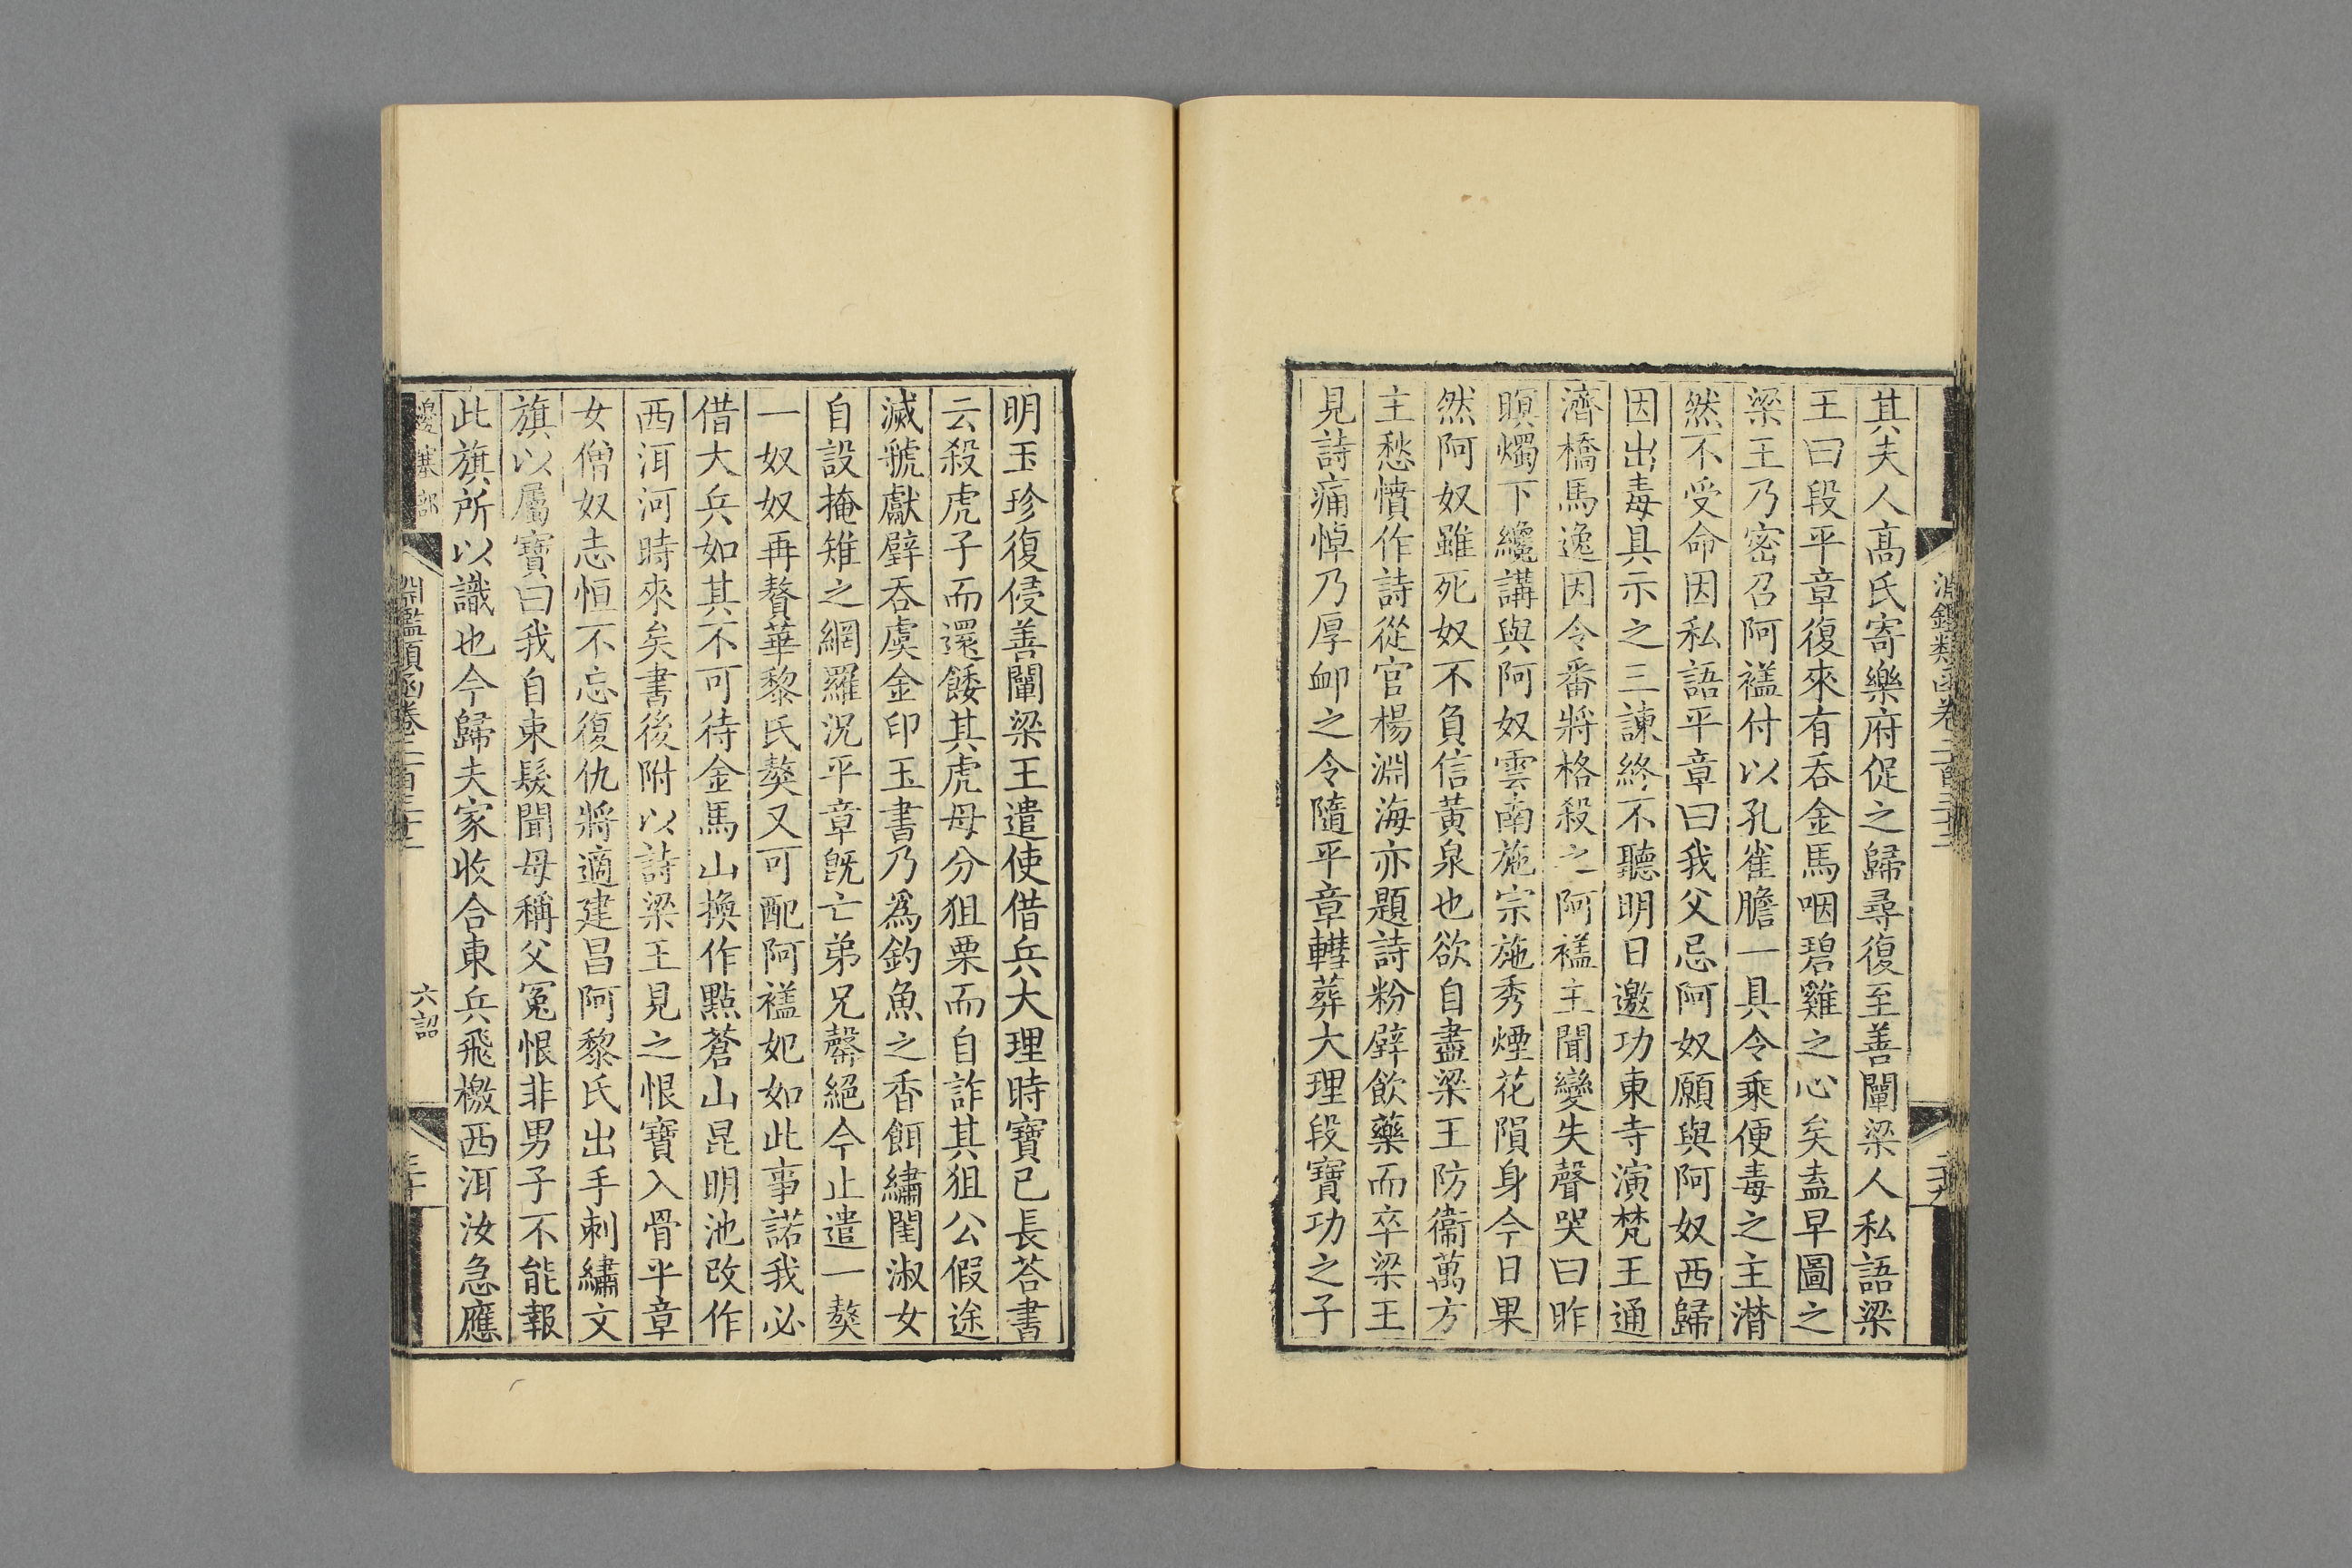 淵鑑類函卷二百三十二
二十九
其夫人高氏寄樂府促之歸尋復至善闡梁人私語梁
王曰段平章復來有吞金馬咽碧雞之心矣盍早圖之
梁王乃密召阿𧞤付以孔雀膽一具令乘便毒之主潸
然不受命因私語平章曰我父忌阿奴願與阿奴西歸
因出毒具示之三諫終不聽明日邀功東寺演梵王通
濟橋馬逸因令番將格殺之阿𧞤主聞變失聲哭曰昨
暝燭下纔講與阿奴雲南施宗施秀煙花隕身今日果
然阿奴雖死奴不負信黃泉也欲自盡梁王防衞萬方
主愁憤作詩從官楊淵海亦題詩粉壁飲藥而卒梁王
見詩痛悼乃厚衈之令隨平章轊葬大理段寶功之子
明玉珍復侵善闡梁王遣使借兵大理時寶已長荅書
云殺虎子而還餧其虎母分狙栗而自詐其狙公假途
滅虢獻璧吞虞金印玉書乃爲釣魚之香餌繡閨淑女
自設掩雉之網羅況平章旣亡弟兄罄絕今止遣一獒
一奴奴再贅華黎氏獒又可配阿𧞤妃如此事諾我必
借大兵如其不可待金馬山換作點蒼山昆明池改作
西洱河時來矣書後附以詩梁王見之恨寶入骨平章
女僧奴志恒不忘復仇將適建昌阿黎氏出手刺繡文
旗以屬寶曰我自束髮聞母稱父冤恨非男子不能報
此旗所以識也今歸夫家收合東兵飛檄西洱汝急應
邊塞部
淵鑑類函卷二百三十二
六詔
三十